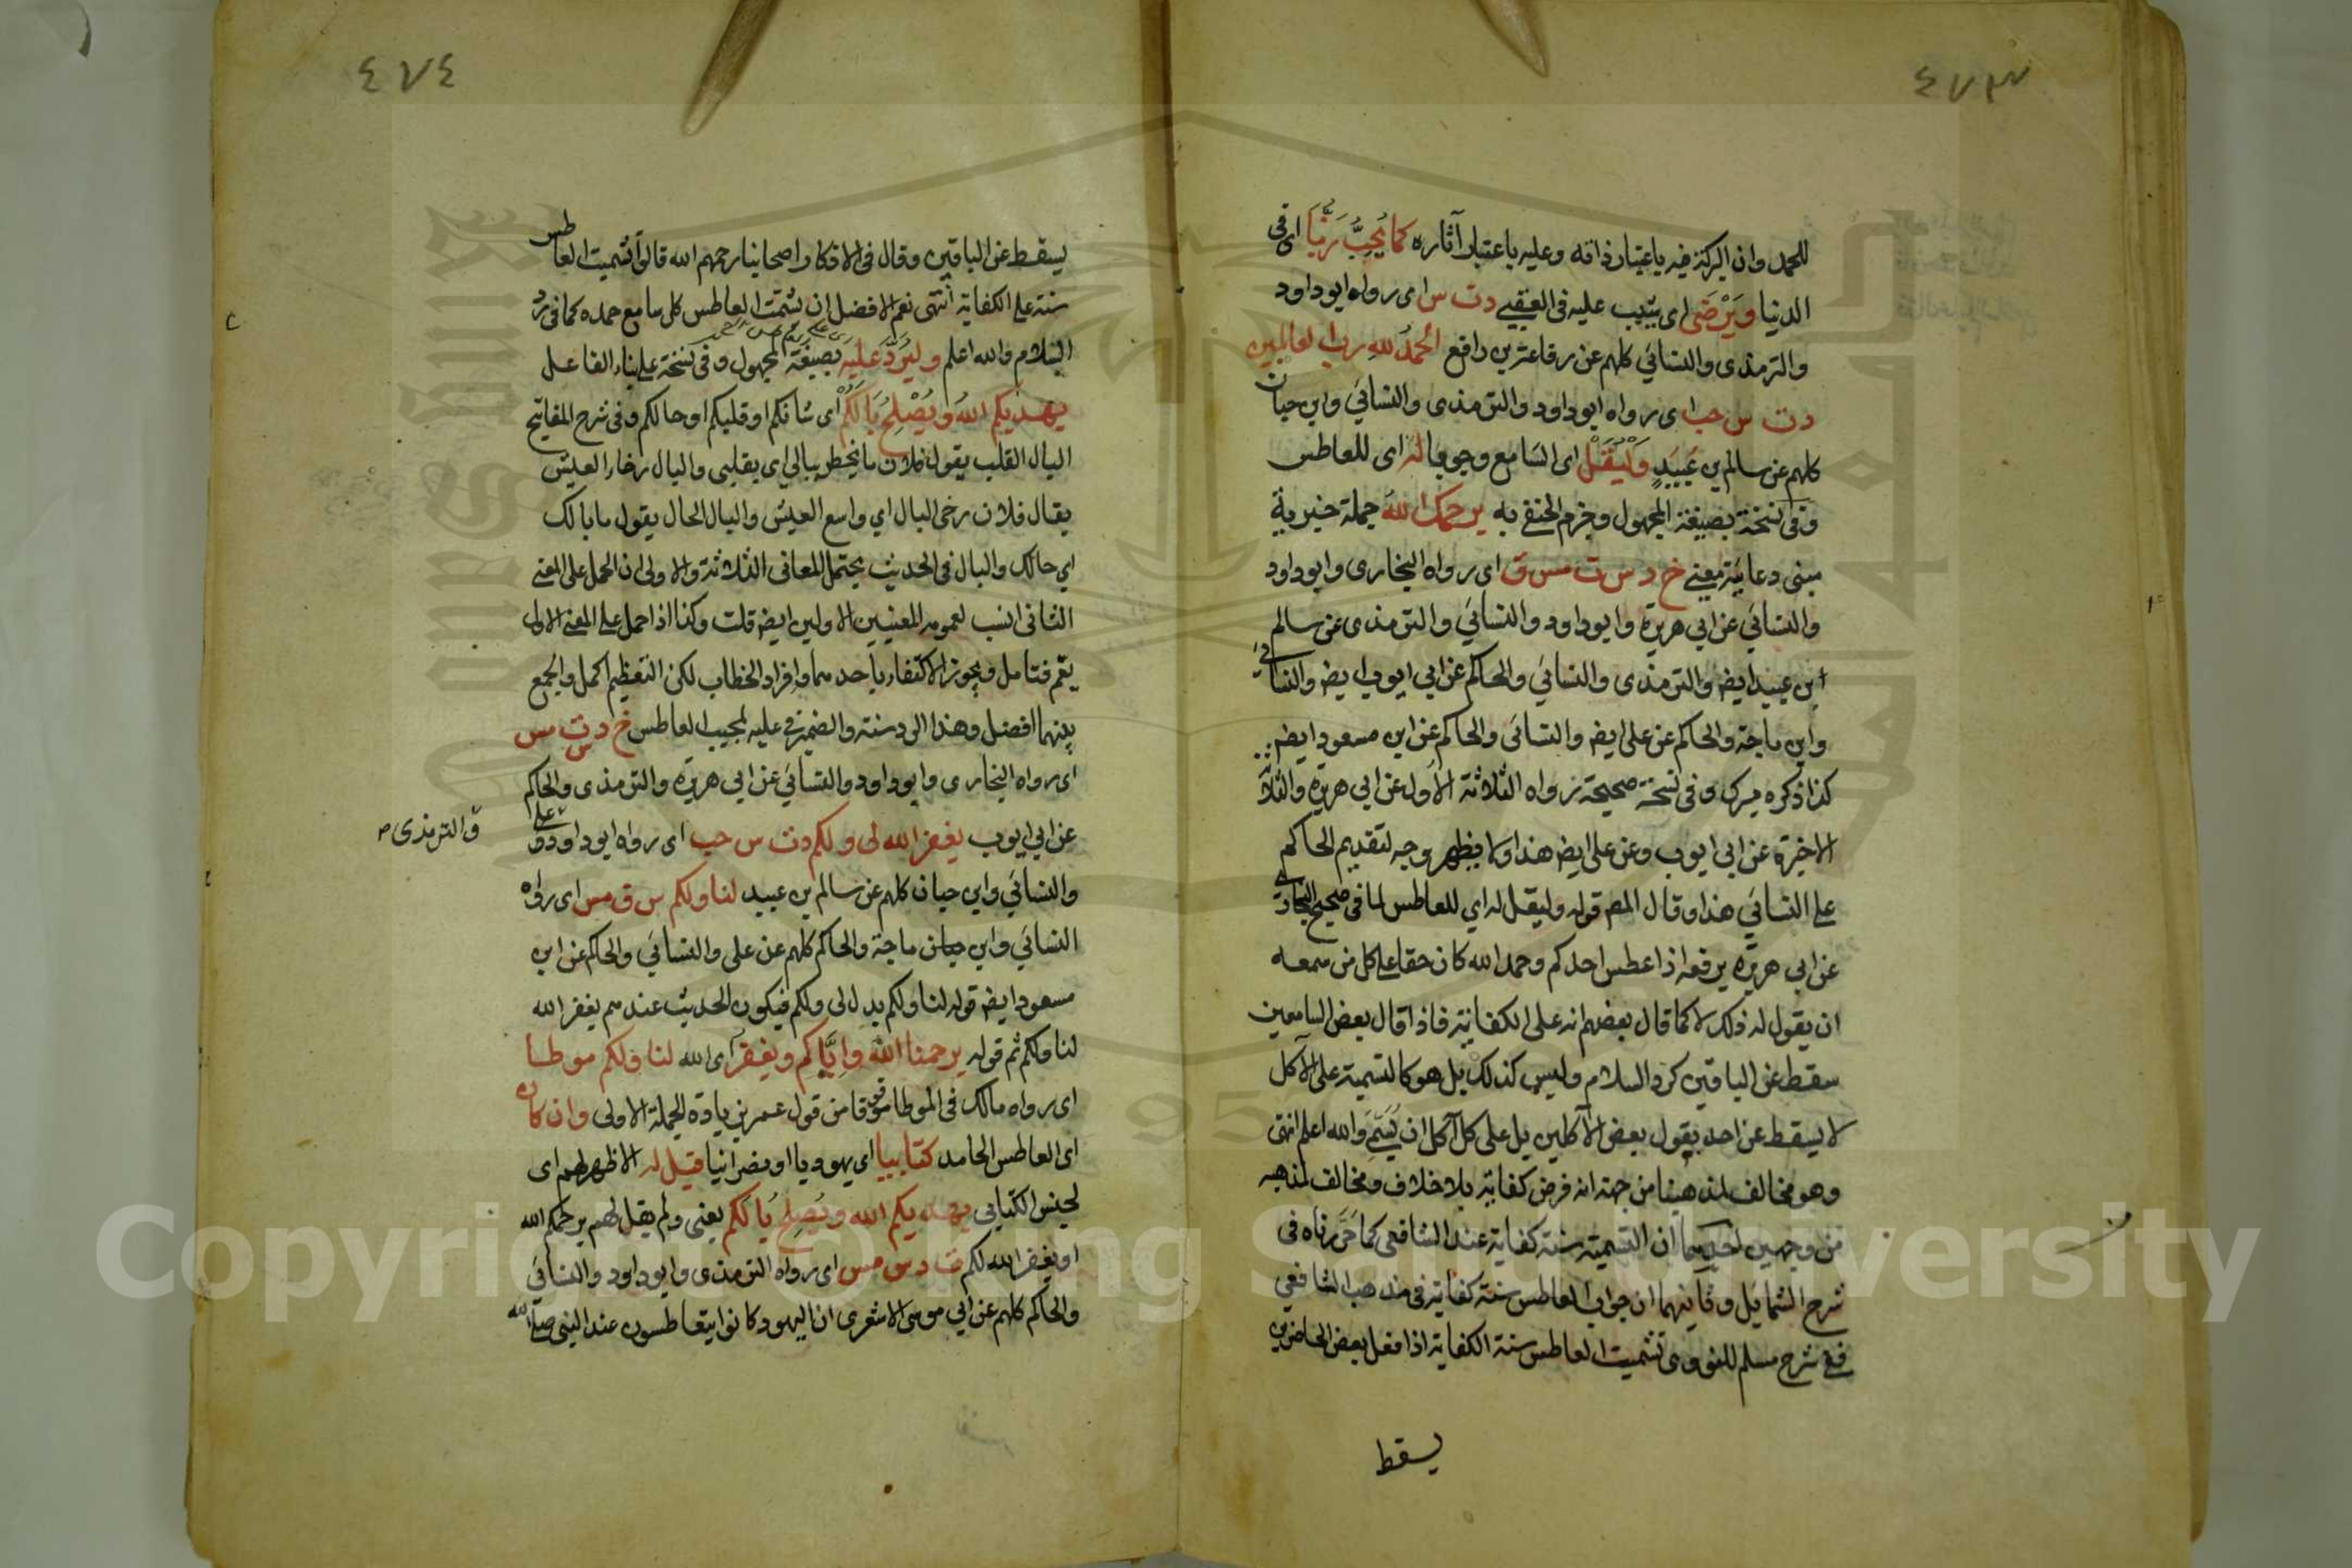 ٤٧٣
للحمد وان البركة فيه باعتبار ذاته وعليه باعتبار آثاره كما يُحِبُّ رَبُّنَا اى فى
الدنيا ويَرْضَى اى يثيب عليه فى العقبى د ت س اى رواه ابو داود
والترمذى والنسائي كلهم عن رفاعة بن رافع الحمدُ للهِ رب العالمين
د ت س حب اى رواه ابو داود والترمذى والنسائي وابن حبان
كلهم عن سالم بن عُبيدٍ وَلْيَقُلْ اى السامع وجوبا لَهُ اى للعاطس
وفى نسخة بصيغة المجهول وجزم الحنفى به يرحمك اللهُ جملة خبرية
مبنى دعائية معنى خ د س ت مس ق اى رواه البخارى وابو داود
والنسائي عن ابي هريرة وابو داود والنسائي والترمذى عن سالم
ابن عبيد ايضا والترمذى والنسائي والحاكم عن ابي ايوب ايضا والنسائي
وابن ماجة والحاكم عن على ايضا والنسائى والحاكم عن ابن مسعود ايضا
كذا ذكره ميرك وفى نسخة صحيحة رواه الثلاثة الأول عن ابي هريرة والثلاثة
الاخيرة عن ابي ايوب وعن على ايضا هذا ولا يظهر وجه لتقديم الحاكم
على النسائي هذا وقال المص قوله وليقل له اي للعاطس لما فى صحيح البخارى
عن ابي هريرة يرفعه اذا عطس احدكم وحمد الله كان حقا على كل من سمعه
ان يقول له ذلك لا كما قال بعضهم انه على الكفاية فاذا قال بعض السامعين
سقط عن الباقين كرد السلام وليس كذلك بل هو كالتسمية على الآكل
لا يسقط عن احد بقول بعض الآكلين بل على كل آكل ان يُسَمِّيَ والله اعلم انتهى
وهو مخالف لمذهبنا من جهة انه فرض كفاية بلا خلاف ومخالف لمذهبه
من وجهين احديهما ان التسمية سنة كفاية عند الشافعى كما حَرَّرناه فى
شرح الشمايل وثانيهما ان جواب العاطس سنة كفاية فى مذهب الشافعي
ففى شرح مسلم للنووى تشميت العاطس سنة الكفاية اذا فعل بعض الحاضرين
يسقط
٤٧٤
يسقط عن الباقين وقال فى الاذكار اصحابنا رحمهم الله قالوا تشميت العاطس
سنة على الكفاية انتهى نعم الافضل ان يشمت العاطس كل سامع حمده كما فى رد
السلام والله اعلم وليَرُدَّ عليه بصيغة المجهول وفى نسخة على بناء الفاعل
يهديكم اللهُ ويُصْلِحُ بَالَكُمْ اى شانكم او قلبكم او حالكم وفى شرح المفاتيح
البال القلب يقول فلان ما يخطر ببالي اى بقلبى والبال رخاء العيش
يقال فلان رخى البال اي واسع العيش والبال الحال يقول ما بالك
اي حالك والبال فى الحديث يحتمل المعانى الثلاثة والاولى ان الحمل على المعنى
الثانى انسب لعمومه المعنيين الاولين ايضا قلت وكذا اذا حمل على المعنى الاول
يعم فتامل ويجوز الاكتفاء باحدهما وافراد الخطاب لكن التعظيم اكمل والجمع
بينهما افضل وهذا الرد سنة والضمير فى عليه لمجيب العاطس خ د س ت مس
اى رواه البخارى وابو داود والنسائي عن ابي هريرة والترمذى والحاكم
عن ابي ايوب يغفر الله لى ولكم د ت س حب اى رواه ابو داود
والترمذى
والنسائي وابن حبان كلهم عن سالم بن عبيد لنا ولكم س ق مس اى رواه
النسائي وابن ماجة والحاكم كلهم عن على والنسائي والحاكم عن ابن
مسعود ايضا قوله لنا ولكم بدل لى ولكم فيكون الحديث عندهم يغفر الله
لنا ولكم ثم قوله يرحمنا الله وايَّاكم ويغفر اى الله لنا ولكم موطا
اى رواه مالك فى الموطا موقوفا من قول عمر بزيادة الجملة الاولى وان كان
اى العاطس الحامد كتابيا اى يهوديا او نصرانيا قيل له الاظهر لهم اى
لجنس الكتابي يهديكم الله ويُصلِح بَالَكم يعنى ولم يقل لهم يرحمكم الله
او يغفر الله لكم ت د س مس اى رواه الترمذى وابو داود والنسائي
والحاكم كلهم عن ابي موسى الاشعرى ان اليهود كانوا يتعاطسون عند النبى صلى الله
Copyright © King Saud University